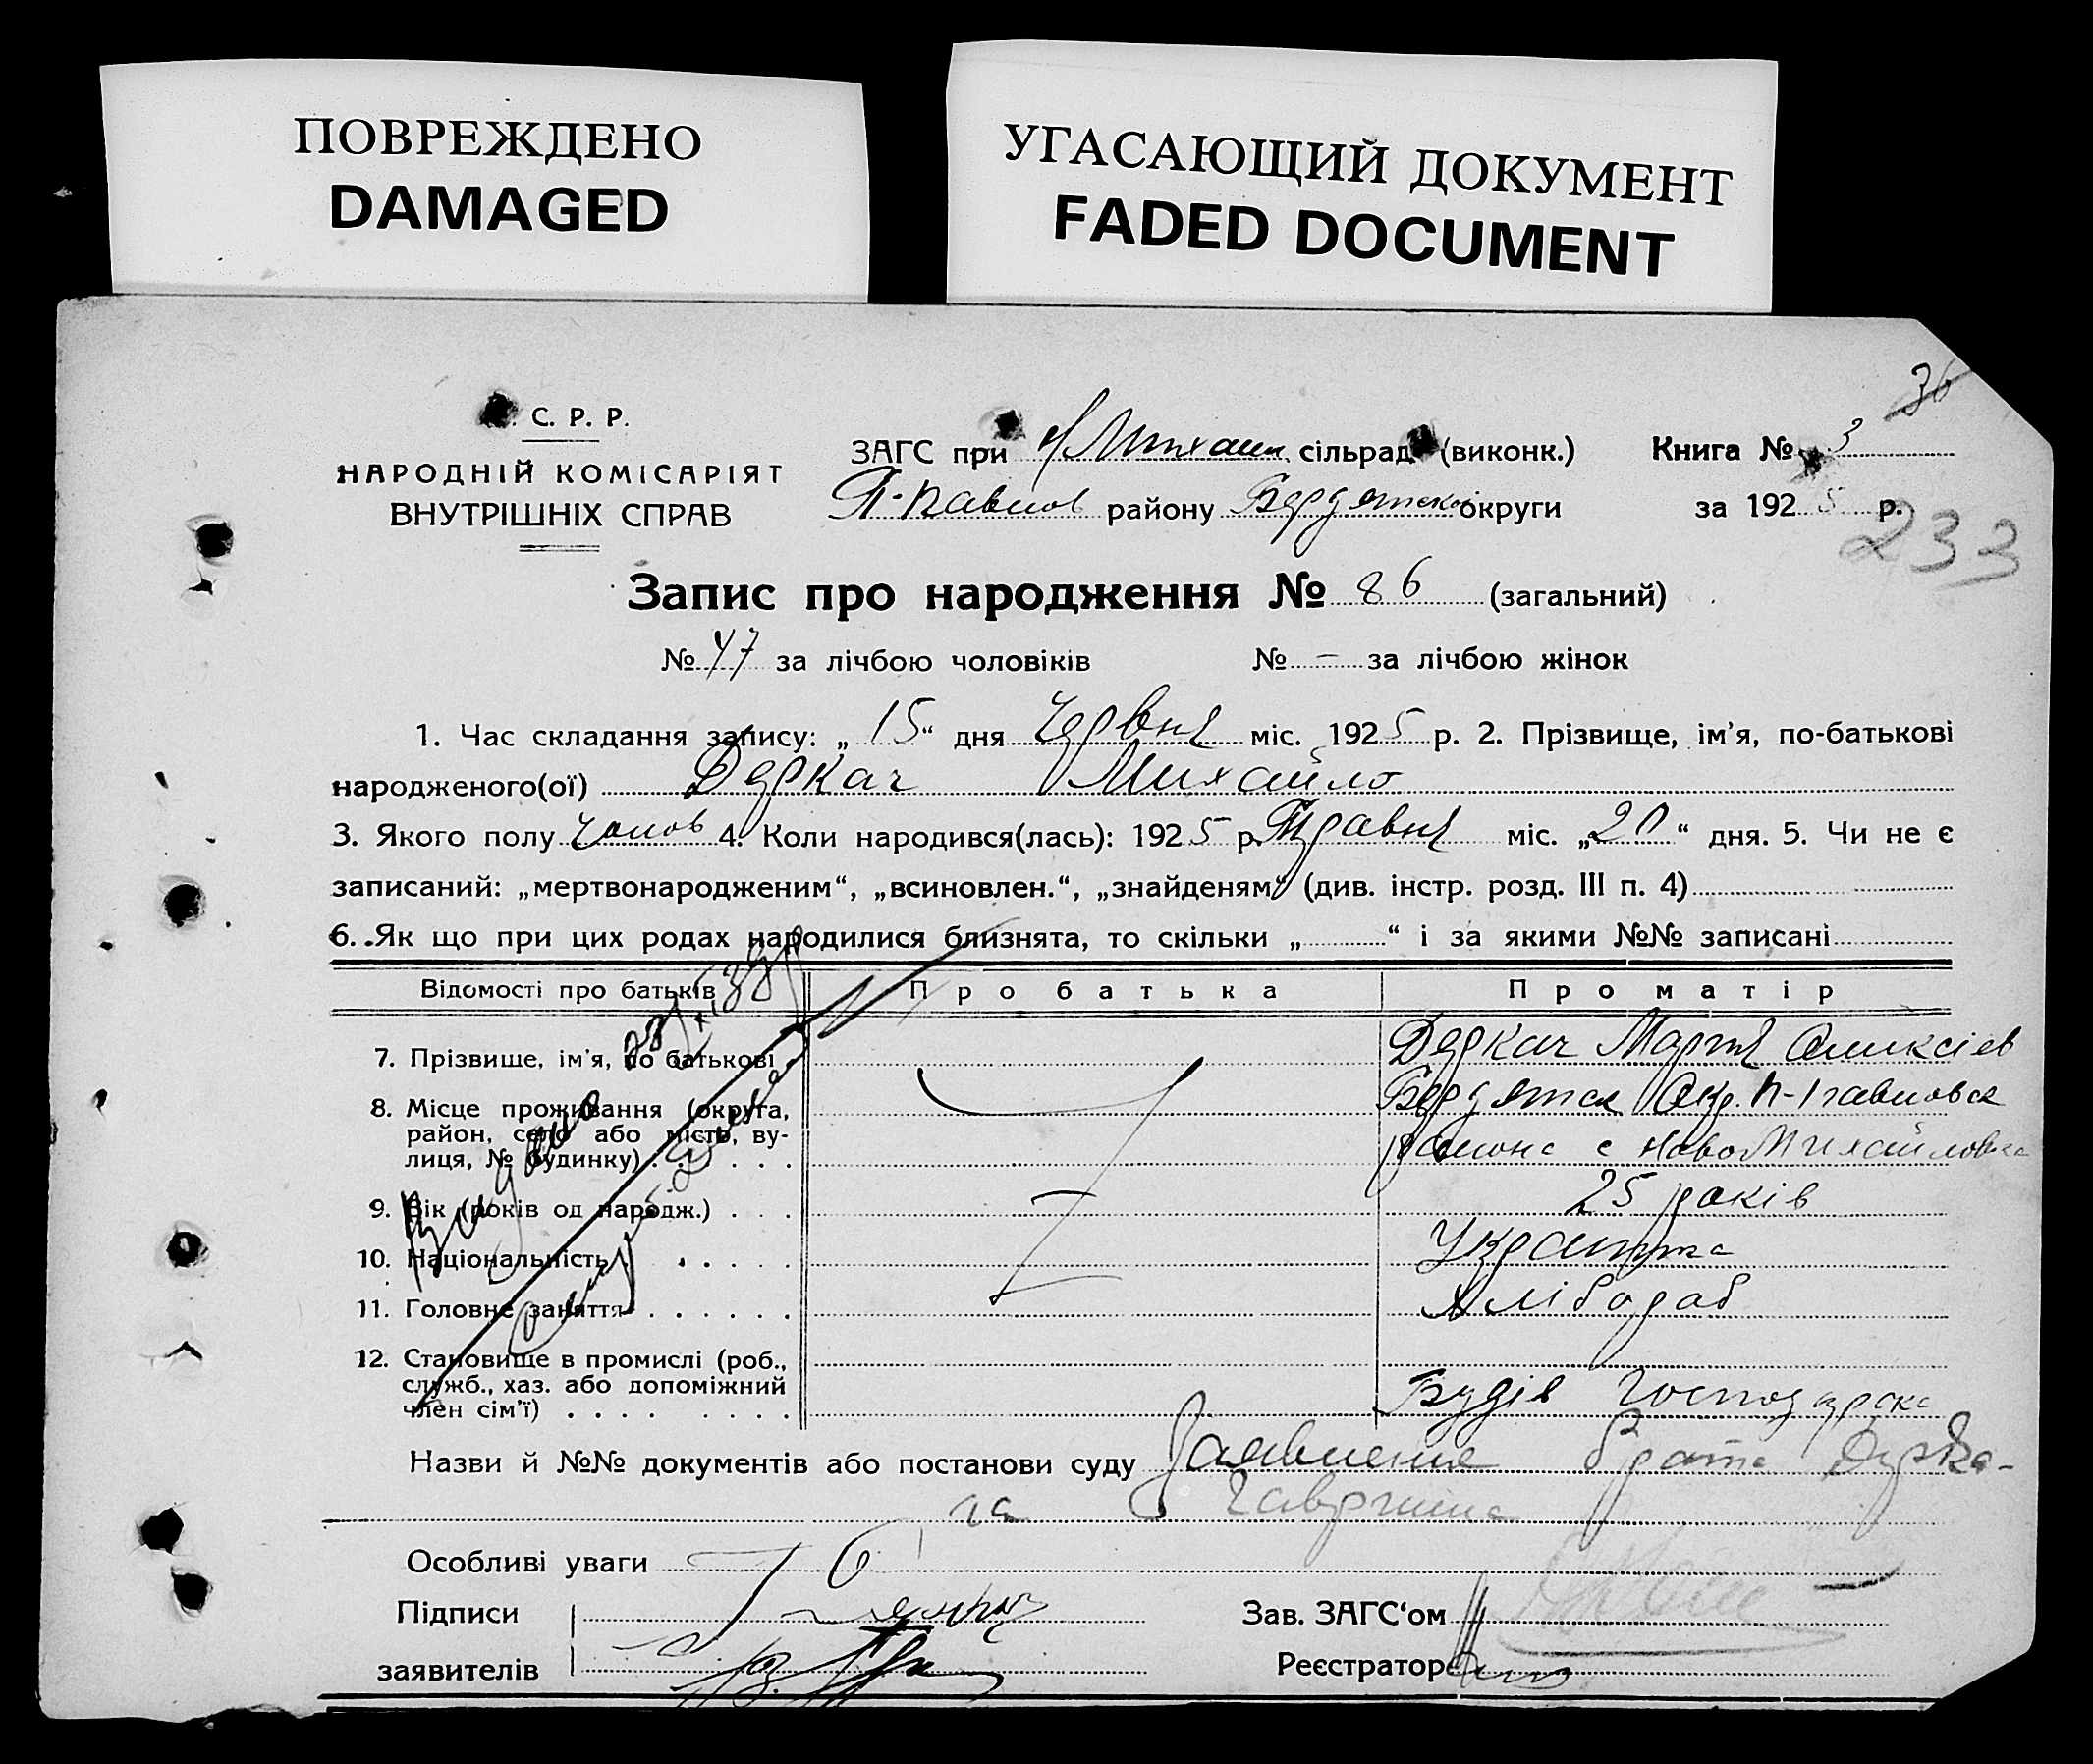 ПОВРЕЖДЕНО
DAMAGED
УГАСАЮЩИЙ ДОКУМЕНТ
FADED DOCUMENT
36
С. Р. Р.
НАРОДНІЙ КОМІСАРІЯТ
ВНУТРІШНІХ СПРАВ
ЗАГС при Н Михайл сільрад (виконк.)
П-Павлов району Бердянської округи
Книга № 3
за 1925 р.
233
Запис про народження № 86 (загальний)
№ 47 за лічбою чоловіків № – за лічбою жінок
1. Час складання запису: „15“ дня Червня міс. 1925 р. 2. Прізвище, ім'я, по-батькові
народженого(ої) Деркач Михайло
3. Якого полу Чолов 4. Коли народився(лась): 1925 р. Травня міс. „20“ дня. 5. Чи не є
записаний: „мертвонародженим“, „всиновлен.“, „знайденям“ (див. інстр. розд. III п. 4)
6. Як що при цих родах народилися близнята, то скільки „ “ і за якими №№ записані
Відомості про батьків Про батька Про матір
7. Прізвище, ім'я, по батькові Деркач Марія Олексієв
8. Місце проживання (округа, район, село або місто, вулиця, № будинку) Бердянск Окр. П-Павловск
района с НовоМихайловка
9. Вік (років од народж.) 25 років
10. Національність Українка
11. Головне заняття Хлібороб
12. Становище в промислі (роб.,
служб., хаз. або допоміжний
член сім'ї) Господарска
Видано
Назви й №№ документів або постанови суду Заявление брата Дерка-
ча Гавриила
Особливі уваги
Підписи
заявителів
Зав. ЗАГС'ом
Реєстратор